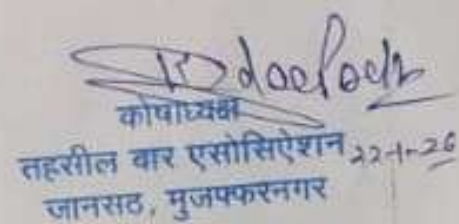 कोषाध्यक्ष
तहसील वार एसोसिऐशन 22-1-26
जानसठ, मुजफ्फरनगर